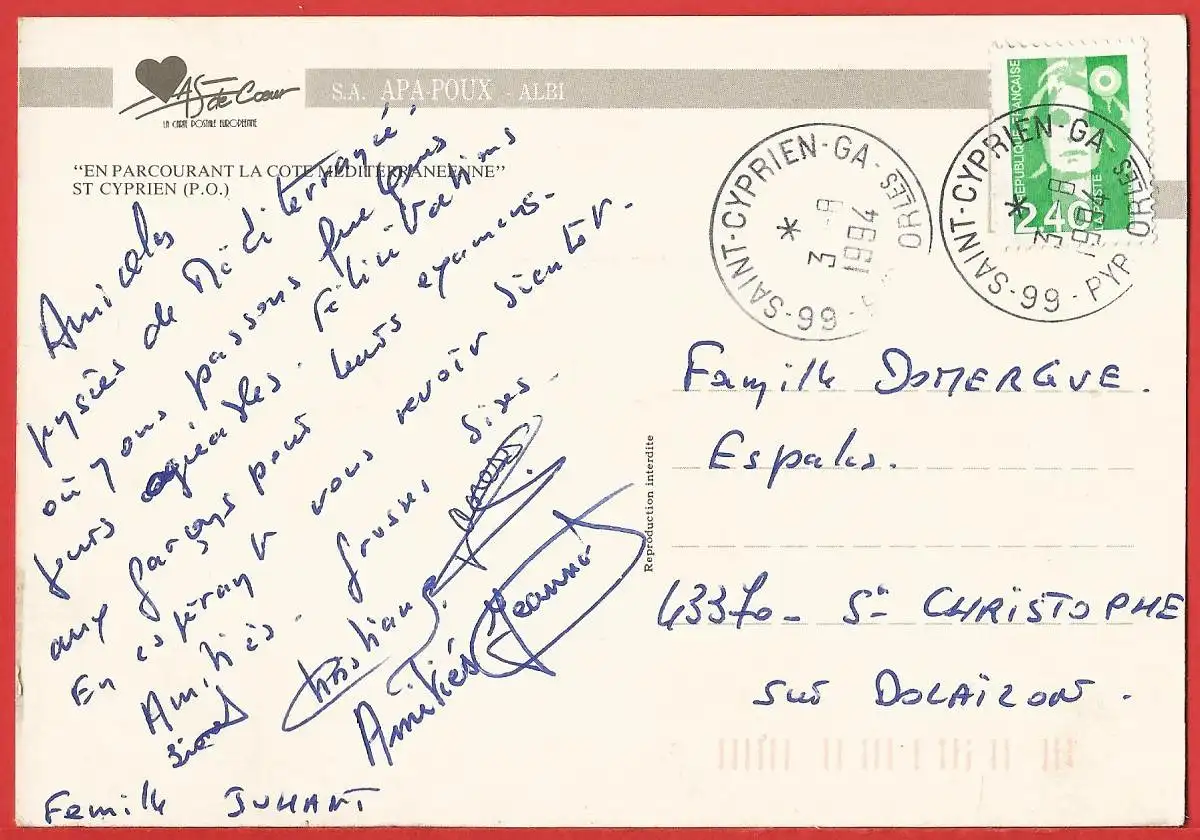 AS de Cœur
LA CARTE POSTALE EUROPÉENNE
S.A. APA-POUX - ALBI
"EN PARCOURANT LA COTE MÉDITERRANÉENNE"
ST CYPRIEN (P.O.)
RÉPUBLIQUE FRANÇAISE
LA POSTE
2,40
66-SAINT-CYPRIEN-GA-
ORLES
*
3-8
1994
66-SAINT-CYPRIEN-GA-
PYR ORLES
*
3-8
1994
Amicales
de Méditerranée.
où nous passons
jours agréables. Félicitations
aux garçons pour leurs examens-
En espérant vous revoir bientôt.
Amitiés. grosses bises.
Christiane
Amitiés Jeannot
Famille JUHANT
Reproduction interdite
Famille DOMERGUE.
Espales.
43370- St CHRISTOPHE
sur DOLAÏZON.